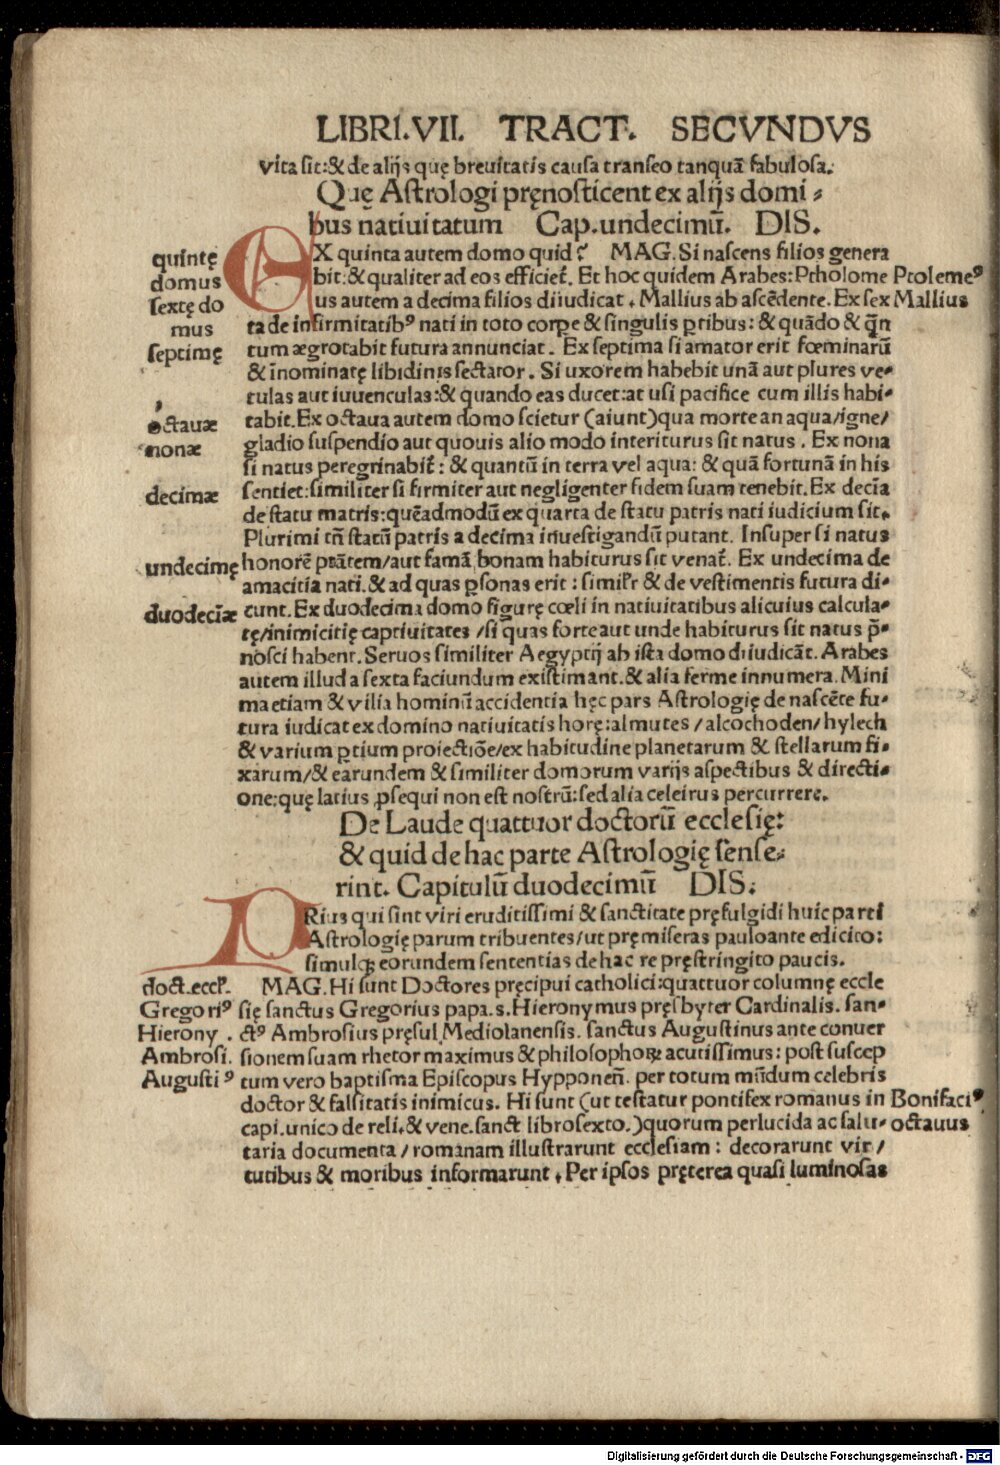 LIBRI.VII. TRACT. SECVNDVS
vita sit:&de alijs quę breuitatis causa transeo tanquā fabulosa.
Quę Astrologi pręnosticent ex alijs domi⸗
bus natiuitatum Cap.undecimū. DIS.
EX quinta autem domo quid? MAG. Si nascens filios genera
bit:& qualiter ad eos efficiet̃. Et hoc quidem Arabes:Ptholome
us autem a decima filios diiudicat. Mallius ab ascēdente. Ex sex
ta de infirmitatibꝰ nati in toto corpe & singulis ꝑtibus: & quādo & q̄n
tum ægrotabit futura annunciat. Ex septima si amator erit fœminarū
& īnominatę libidinis sectator. Si uxorem habebit unā aut plures ve⸗
tulas aut iuuenculas:& quando eas ducet:at usi pacifice cum illis habi⸗
tabit. Ex octaua autem domo scietur (aiunt)qua morte an aqua/igne/
gladio suspendio aut quouis alio modo interiturus sit natus. Ex nona
si natus peregrinabit̃: & quantū in terra vel aqua: & quā fortunā in his
sentiet:similiter si firmiter aut negligenter fidem suam tenebit. Ex decīa
de statu matris:quēadmodū ex quarta de statu patris nati iudicium sit.
Plurimi tñ statū patris a decima inuestigandū putant. Insuper si natus
honorē p̄stātem/aut famā bonam habiturus sit venat̃. Ex undecima de
amacitia nati.& ad quas ꝑsonas erit: similr̃ & de vestimentis futura di⸗
cunt. Ex duodecima domo figurę cœli in natiuitatibus alicuius calcula⸗
tę/inimicitię captiuitates/si quas forte aut unde habiturus sit natus p̄⸗
nosci habent. Seruos similiter Aegyptij ab ista domo diiudicāt. Arabes
autem illud a sexta faciundum existimant.& alia ferme innumera. Mini
ma etiam & vilia hominū accidentia hęc pars Astrologię de nascēte fu⸗
tura iudicat ex domino natiuitatis horę:almutes/alcochoden/hylech
& varium ꝑtium proiectiōe/ex habitudine planetarum & stellarum fi⸗
xarum/& earundem & similiter domorum varijs aspectibus & directi⸗
one:quę latius ꝓsequi non est nostrū:sed alia celeirus percurrere.
De Laude quattuor doctorū ecclesię:
& quid de hac parte Astrologię sense⸗
rint. Capitulū duodecimū DIS.
PRius qui sint viri eruditissimi & sanctitate pręfulgidi huic parti
Astrologię parum tribuentes/ut pręmiseras pauloante edicito:
simulqꝫ eorundem sententias de hac re pręstringito paucis.
MAG. Hi sunt Doctores pręcipui catholici:quattuor columnę eccle
się sanctus Gregorius papa.s.Hieronymus pręsbyter Cardinalis. san⸗
ctꝰ Ambrosius pręsul Mediolanensis. sanctus Augustinus ante conuer
sionem suam rhetor maximus & philosophoꝝ acutissimus: post suscep
tum vero baptisma Episcopus Hypponeñ. per totum mūdum celebris
doctor & falsitatis inimicus. Hi sunt (ut testatur pontifex romanus in
capi.unico de reli.& vene.sanct libro sexto.)quorum perlucida ac salu⸗
taria documenta/romanam illustrarunt ecclesiam: decorarunt vir/
tutibus & moribus informarunt. Per ipsos pręterea quasi luminosas
quintę
domus
sextę do
mus
septimę
octauæ
nonæ
decimæ
undecimę
duodecīæ
doct.eccl̃.
Gregoriꝰ
Hierony.
Ambrosi.
Augustiꝰ
Ptolemeꝰ
Mallius
Bonifaciꝰ
octauus
Digitalisierung gefördert durch die Deutsche Forschungsgemeinschaft - DFG